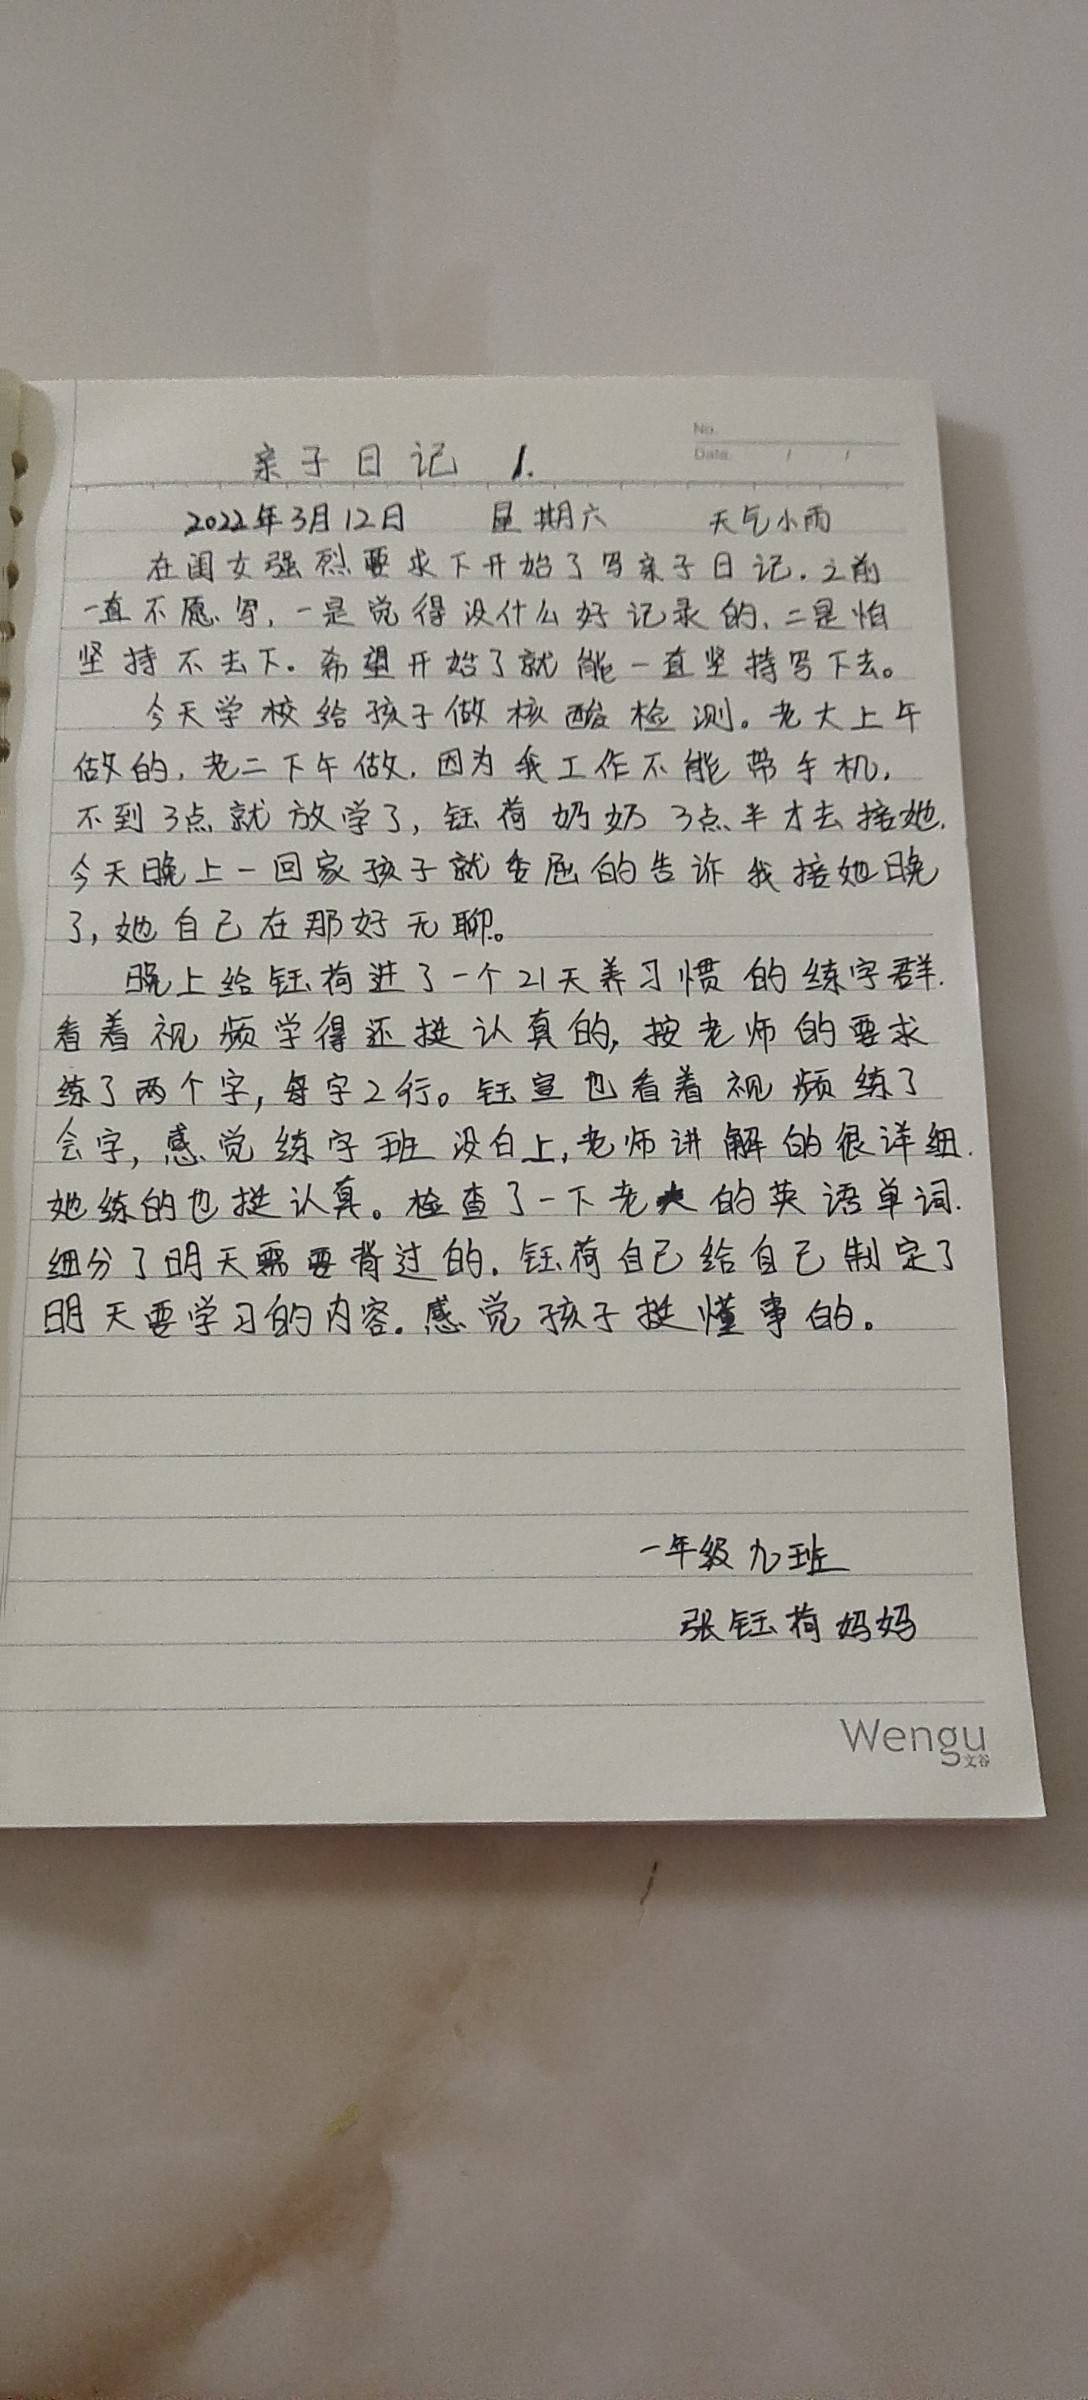 No.
Date. / /
亲子日记 1.
2022年3月12日 星期六 天气小雨
在闺女强烈要求下开始了写亲子日记.之前
一直不愿写,一是觉得没什么好记录的,二是怕
坚持不去下.希望开始了就能一直坚持写下去。
今天学校给孩子做核酸检测。老大上午
做的,老二下午做.因为我工作不能带手机,
不到3点就放学了,钰荷奶奶3点半才去接她.
今天晚上一回家孩子就委屈的告诉我接她晚
了,她自己在那好无聊。
晚上给钰荷进了一个21天养习惯的练字群.
看着视频学得还挺认真的,按老师的要求
练了两个字,每字2行。钰宣也看着视频练了
会字,感觉练字班没白上,老师讲解的很详细.
她练的也挺认真。检查了一下老大的英语单词.
细分了明天需要背过的.钰荷自己给自己制定了
明天要学习的内容.感觉孩子挺懂事的。
一年级九班
张钰荷妈妈
Wengu
文谷